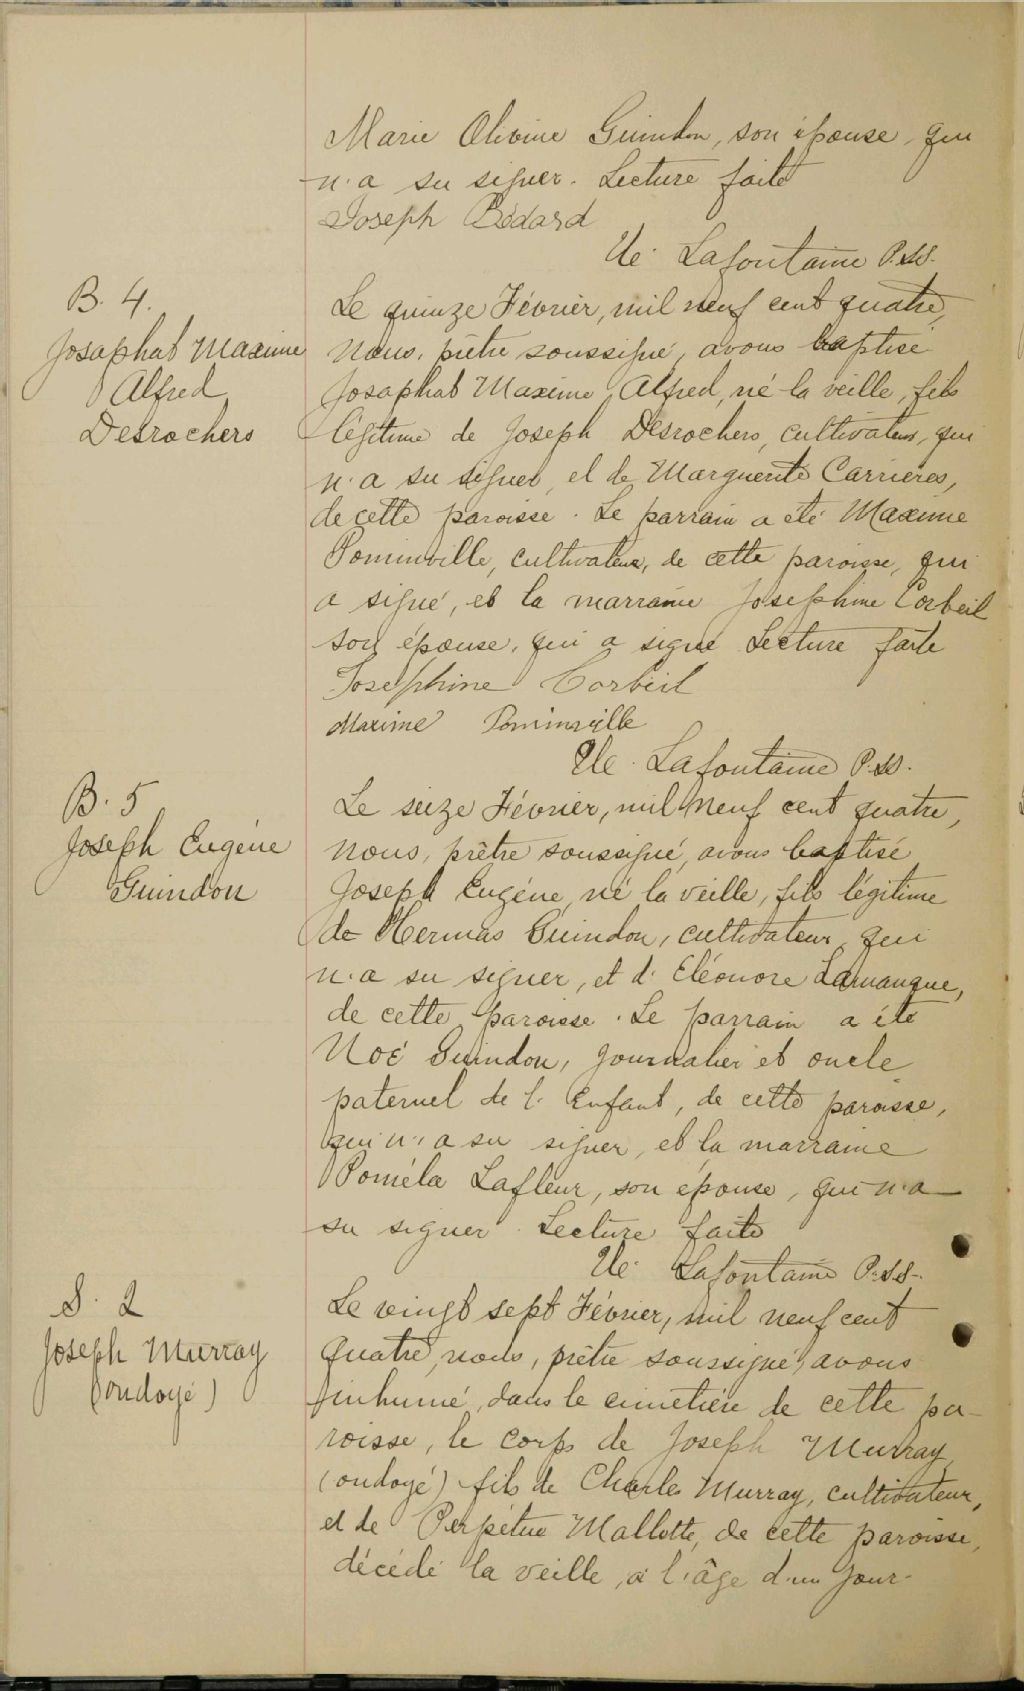 Marie Olivine Guindon, son épouse, qui
n'a su signer. Lecture faite
Joseph Bédard
Lafontaine P.SS.
B. 4.
Josaphat Maxime
Alfred
Desrochers
Le quinze Février, mil neuf cent quatre,
nous, prêtre soussigné, avons baptisé
Josaphat Maxime Alfred, né la veille, fils
légitime de Joseph Desrochers, cultivateur, qui
n'a su signer, et de Marguerite Carrières,
de cette paroisse. Le parrain a été Maxime
Pominville, cultivateur, de cette paroisse, qui
a signé, et la marraine Josephine Corbeil
son épouse, qui a signé Lecture faite
Josephine Corbeil
Maxime Pominville
Lafontaine P.SS.
B. 5
Joseph Eugène
Guindon
Le seize Février, mil neuf cent quatre,
nous, prêtre soussigné, avons baptisé
Joseph Eugène, né la veille, fils légitime
de Hermas Guindon, cultivateur, qui
n'a su signer, et d'Eléonore Lamangue,
de cette paroisse. Le parrain a été
Noé Guindon, journalier et oncle
paternel de l'Enfant, de cette paroisse,
qui n'a su signer, et la marraine
Poméla Lafleur, son épouse, qui n'a
su signer. Lecture faite
Lafontaine P.SS.
S. 2
Joseph Murray
(ondoyé)
Le vingt sept Février, mil neuf cent
quatre, nous, prêtre soussigné, avons
inhumé, dans le cimetière de cette pa-
roisse, le corps de Joseph Murray,
(ondoyé) fils de Charles Murray, cultivateur,
et de Perpétue Mallette, de cette paroisse,
décédé la veille, à l'âge d'un jour.